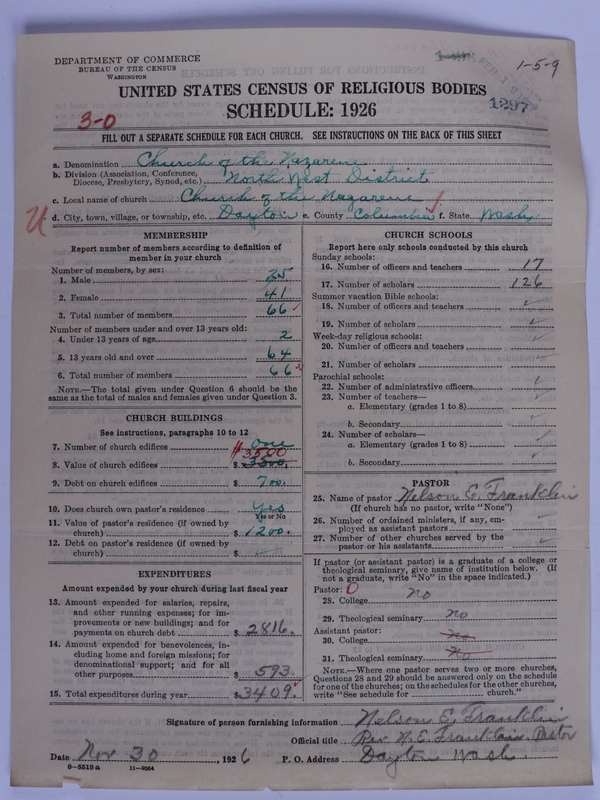 DEPARTMENT OF COMMERCE
BUREAU OF THE CENSUS
WASHINGTON
1-5-9
UNITED STATES CENSUS OF RELIGIOUS BODIES
SCHEDULE: 1926
1297
3-0
FILL OUT A SEPARATE SCHEDULE FOR EACH CHURCH. SEE INSTRUCTIONS ON THE BACK OF THIS SHEET
a. Denomination Church of the Nazarene
b. Division (Association, Conference,
Diocese, Presbytery, Synod, etc.) North West District
c. Local name of church Church of the Nazarene
d. City, town, village, or township, etc. Dayton e. County Columbia f. State Wash.
MEMBERSHIP
Report number of members according to definition of
member in your church
Number of members, by sex:
1. Male 25
2. Female 41
3. Total number of members 66
Number of members under and over 13 years old:
4. Under 13 years of age 2
5. 13 years old and over 64
6. Total number of members 66
NOTE.—The total given under Question 6 should be the
same as the total of males and females given under Question 3.
CHURCH BUILDINGS
See instructions, paragraphs 10 to 12
7. Number of church edifices one
$3500
8. Value of church edifices $ 3500.
9. Debt on church edifices $ 700.
10. Does church own pastor's residence Yes
Yes or No
11. Value of pastor's residence (if owned by
church) $ 1200.
12. Debt on pastor's residence (if owned by
church) $
EXPENDITURES
Amount expended by your church during last fiscal year
13. Amount expended for salaries, repairs,
and other running expenses; for im-
provements or new buildings; and for
payments on church debt $ 2816.
14. Amount expended for benevolences, in-
cluding home and foreign missions; for
denominational support; and for all
other purposes $ 593.
15. Total expenditures during year $ 3409.
CHURCH SCHOOLS
Report here only schools conducted by this church
Sunday schools:
16. Number of officers and teachers 17
17. Number of scholars 126
Summer vacation Bible schools:
18. Number of officers and teachers
19. Number of scholars
Week-day religious schools:
20. Number of officers and teachers
21. Number of scholars
Parochial schools:
22. Number of administrative officers
23. Number of teachers—
a. Elementary (grades 1 to 8)
b. Secondary
24. Number of scholars—
a. Elementary (grades 1 to 8)
b. Secondary
PASTOR
25. Name of pastor Nelson E. Franklin
(If church has no pastor, write "None")
26. Number of ordained ministers, if any, em-
ployed as assistant pastors
27. Number of other churches served by the
pastor or his assistants
If pastor (or assistant pastor) is a graduate of a college or
theological seminary, give name of institution below. (If
not a graduate, write "No" in the space indicated.)
Pastor: 0
28. College no
29. Theological seminary no
Assistant pastor:
30. College no
31. Theological seminary no
NOTE.—Where one pastor serves two or more churches,
Questions 28 and 29 should be answered only on the schedule
for one of the churches; on the schedules for the other churches,
write "See schedule for church."
Signature of person furnishing information Nelson E. Franklin
Official title Rev. N. E. Franklin, Pastor
Date Nov 30, 1926 P. O. Address Dayton Wash.
8—5518 a 11—9024